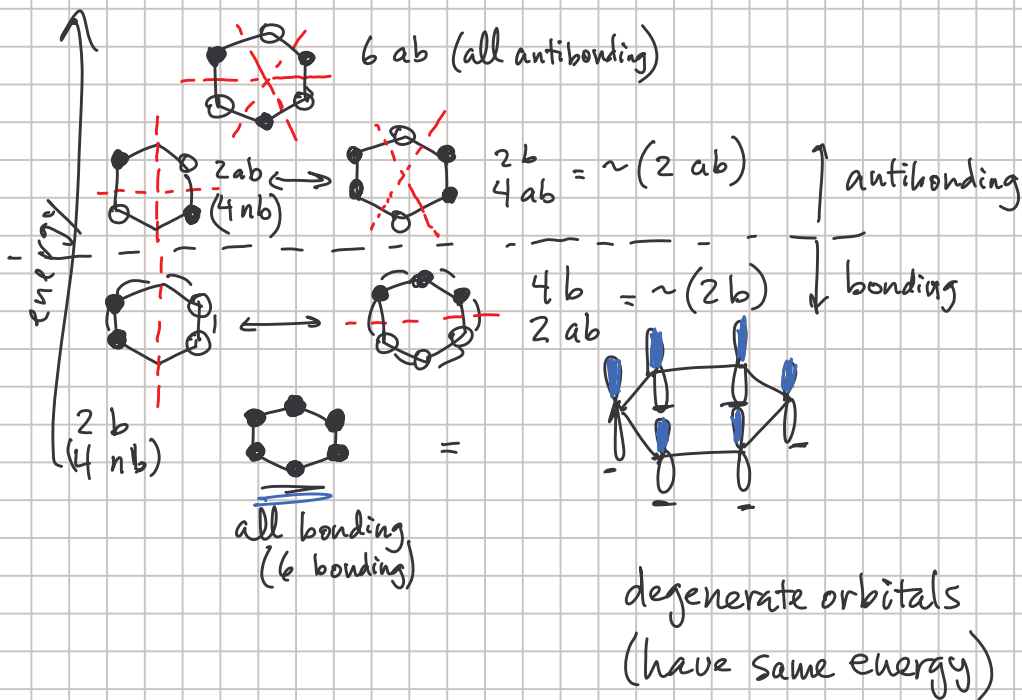 6 ab (all antibonding)
2ab
(4 nb)
2 b
4 ab = ~ (2 ab)
antibonding
energy
bonding
4 b
2 ab = ~ (2 b)
2 b
(4 nb)
=
all bonding
(6 bonding)
degenerate orbitals
(have same energy)